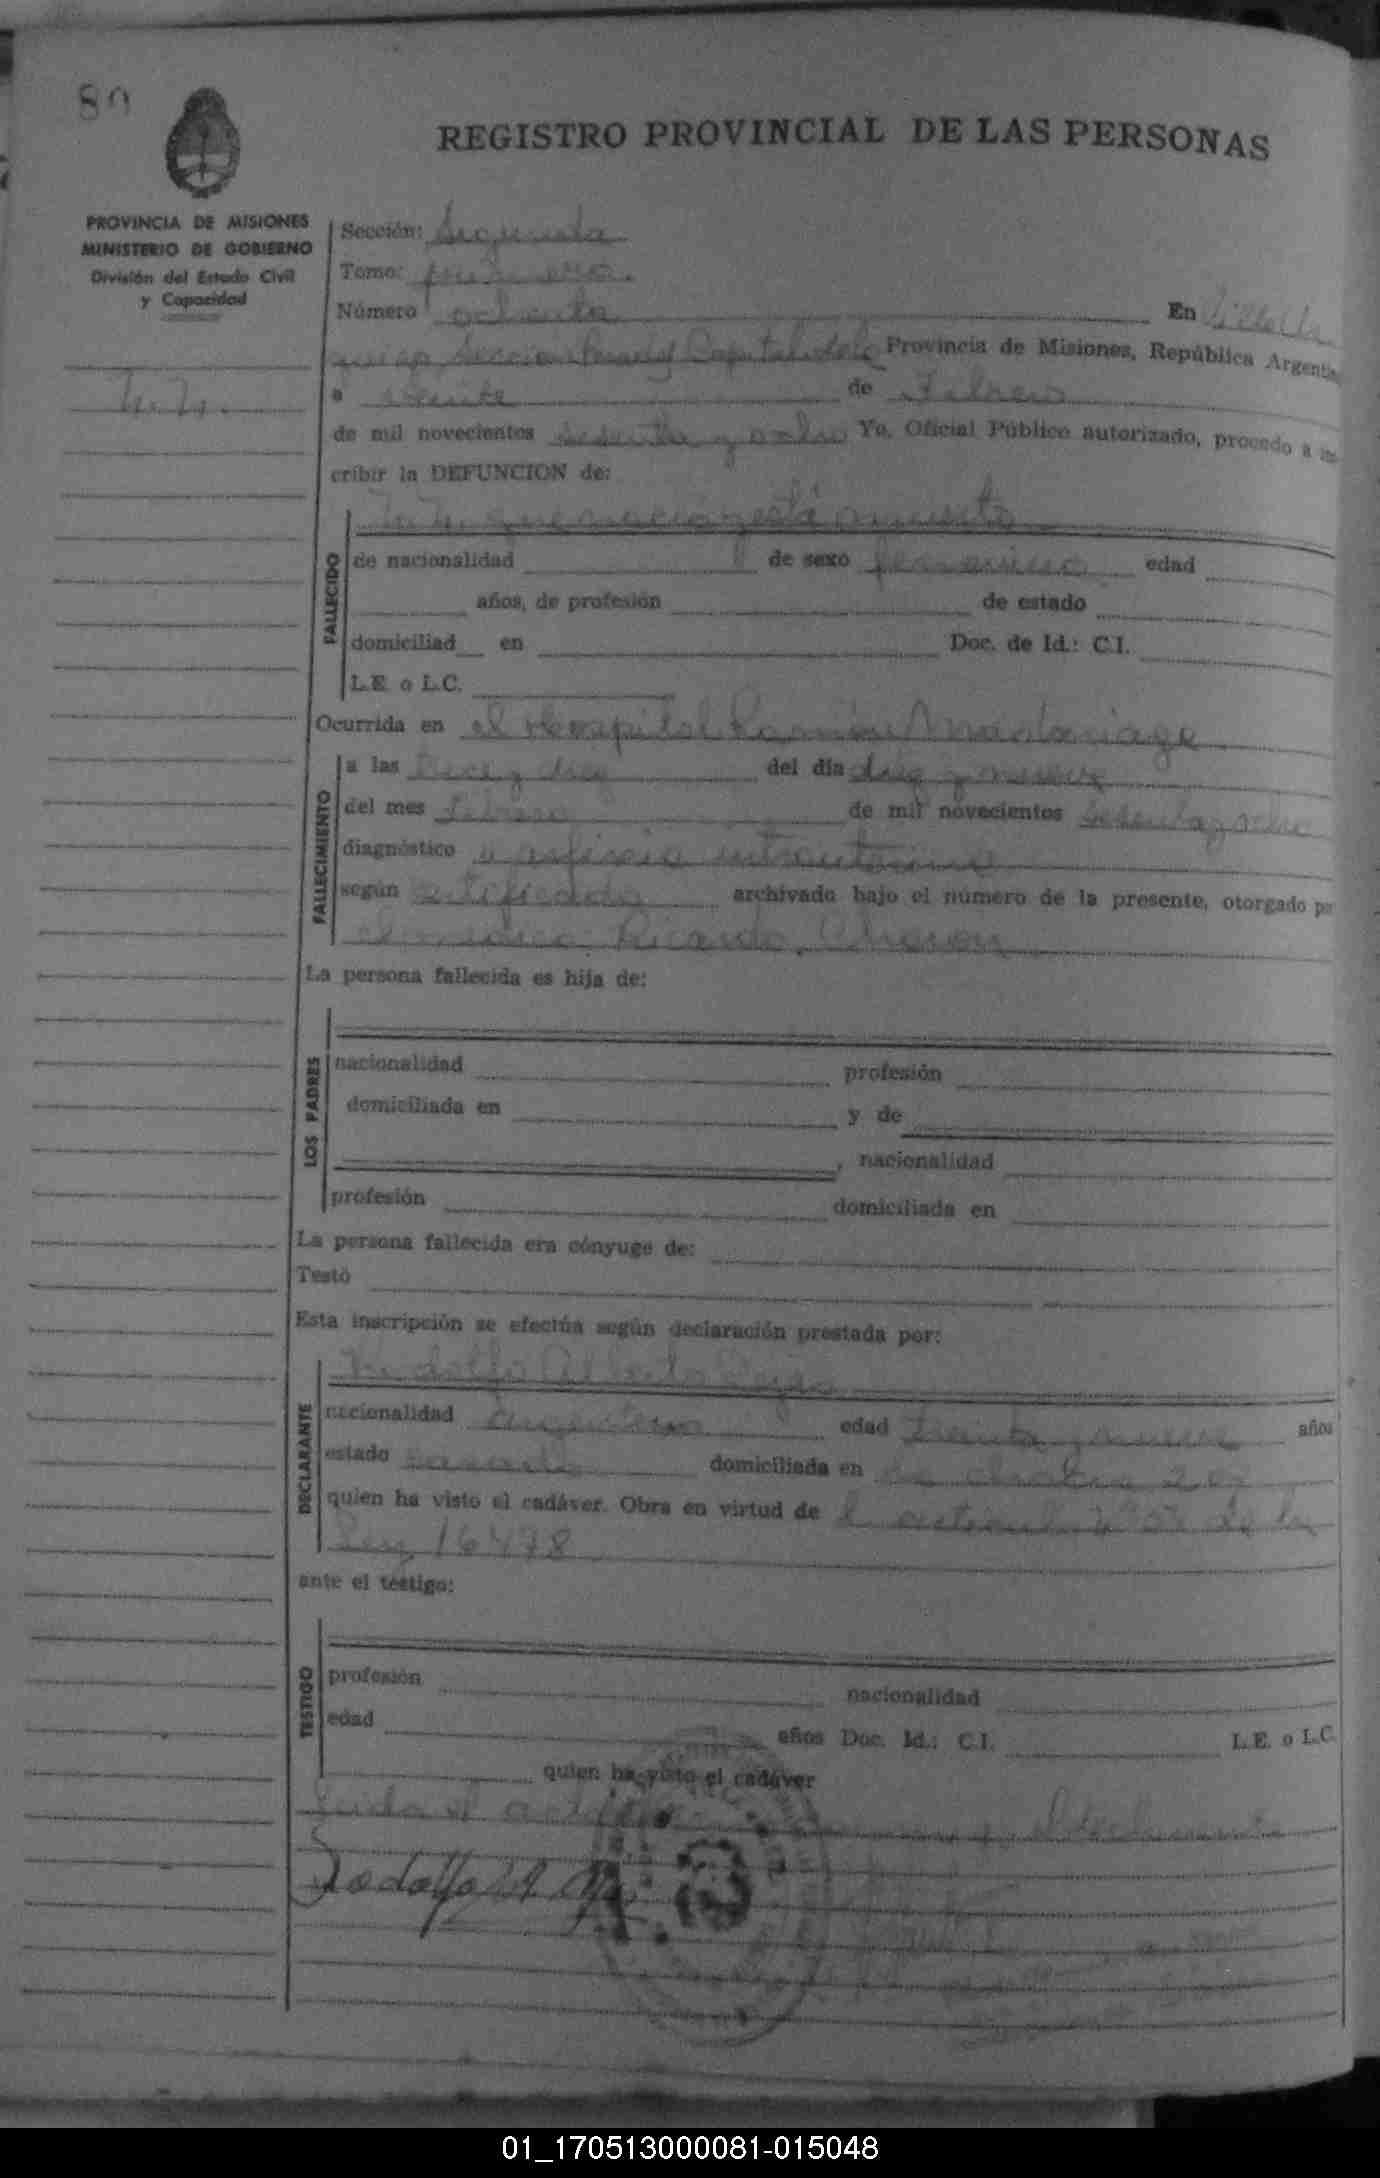 80
REGISTRO PROVINCIAL DE LAS PERSONAS
PROVINCIA DE MISIONES
MINISTERIO DE GOBIERNO
División del Estado Civil
y Capacidad
N.N.
Sección: Segunda
Tomo: primero.
Número ochenta En Villa
Sección Capital de la Provincia de Misiones, República Argentina
a veinte de Febrero
de mil novecientos sesenta y ocho Yo, Oficial Público autorizado, procedo a ins-
cribir la DEFUNCION de:
N.N. que nació y está muerto
FALLECIDO
de nacionalidad de sexo femenino edad
años, de profesión de estado
domiciliad en Doc. de Id.: C.I.
L.E. o L.C.
Ocurrida en el Hospital Ramón Madariaga
FALLECIMIENTO
a las trece y diez del día diez y nueve
del mes Febrero de mil novecientos sesenta y ocho
diagnóstico asfixia intrauterina
según certificado archivado bajo el número de la presente, otorgado po
el médico Ricardo
La persona fallecida es hija de:
LOS PADRES
nacionalidad profesión
domiciliada en y de
, nacionalidad
profesión domiciliada en
La persona fallecida era cónyuge de:
Testó
Esta inscripción se efectúa según declaración prestada por:
DECLARANTE
Rodolfo Alberto
nacionalidad argentino edad treinta y nueve años
estado casado domiciliada en
quien ha visto el cadáver. Obra en virtud de de la
Ley 16478
ante el testigo:
TESTIGO
profesión nacionalidad
edad años Doc. Id.: C.I. L.E. o L.C.
quien ha visto el cadáver
Leida el acta el declarante
Rodolfo A.
01_170513000081-015048